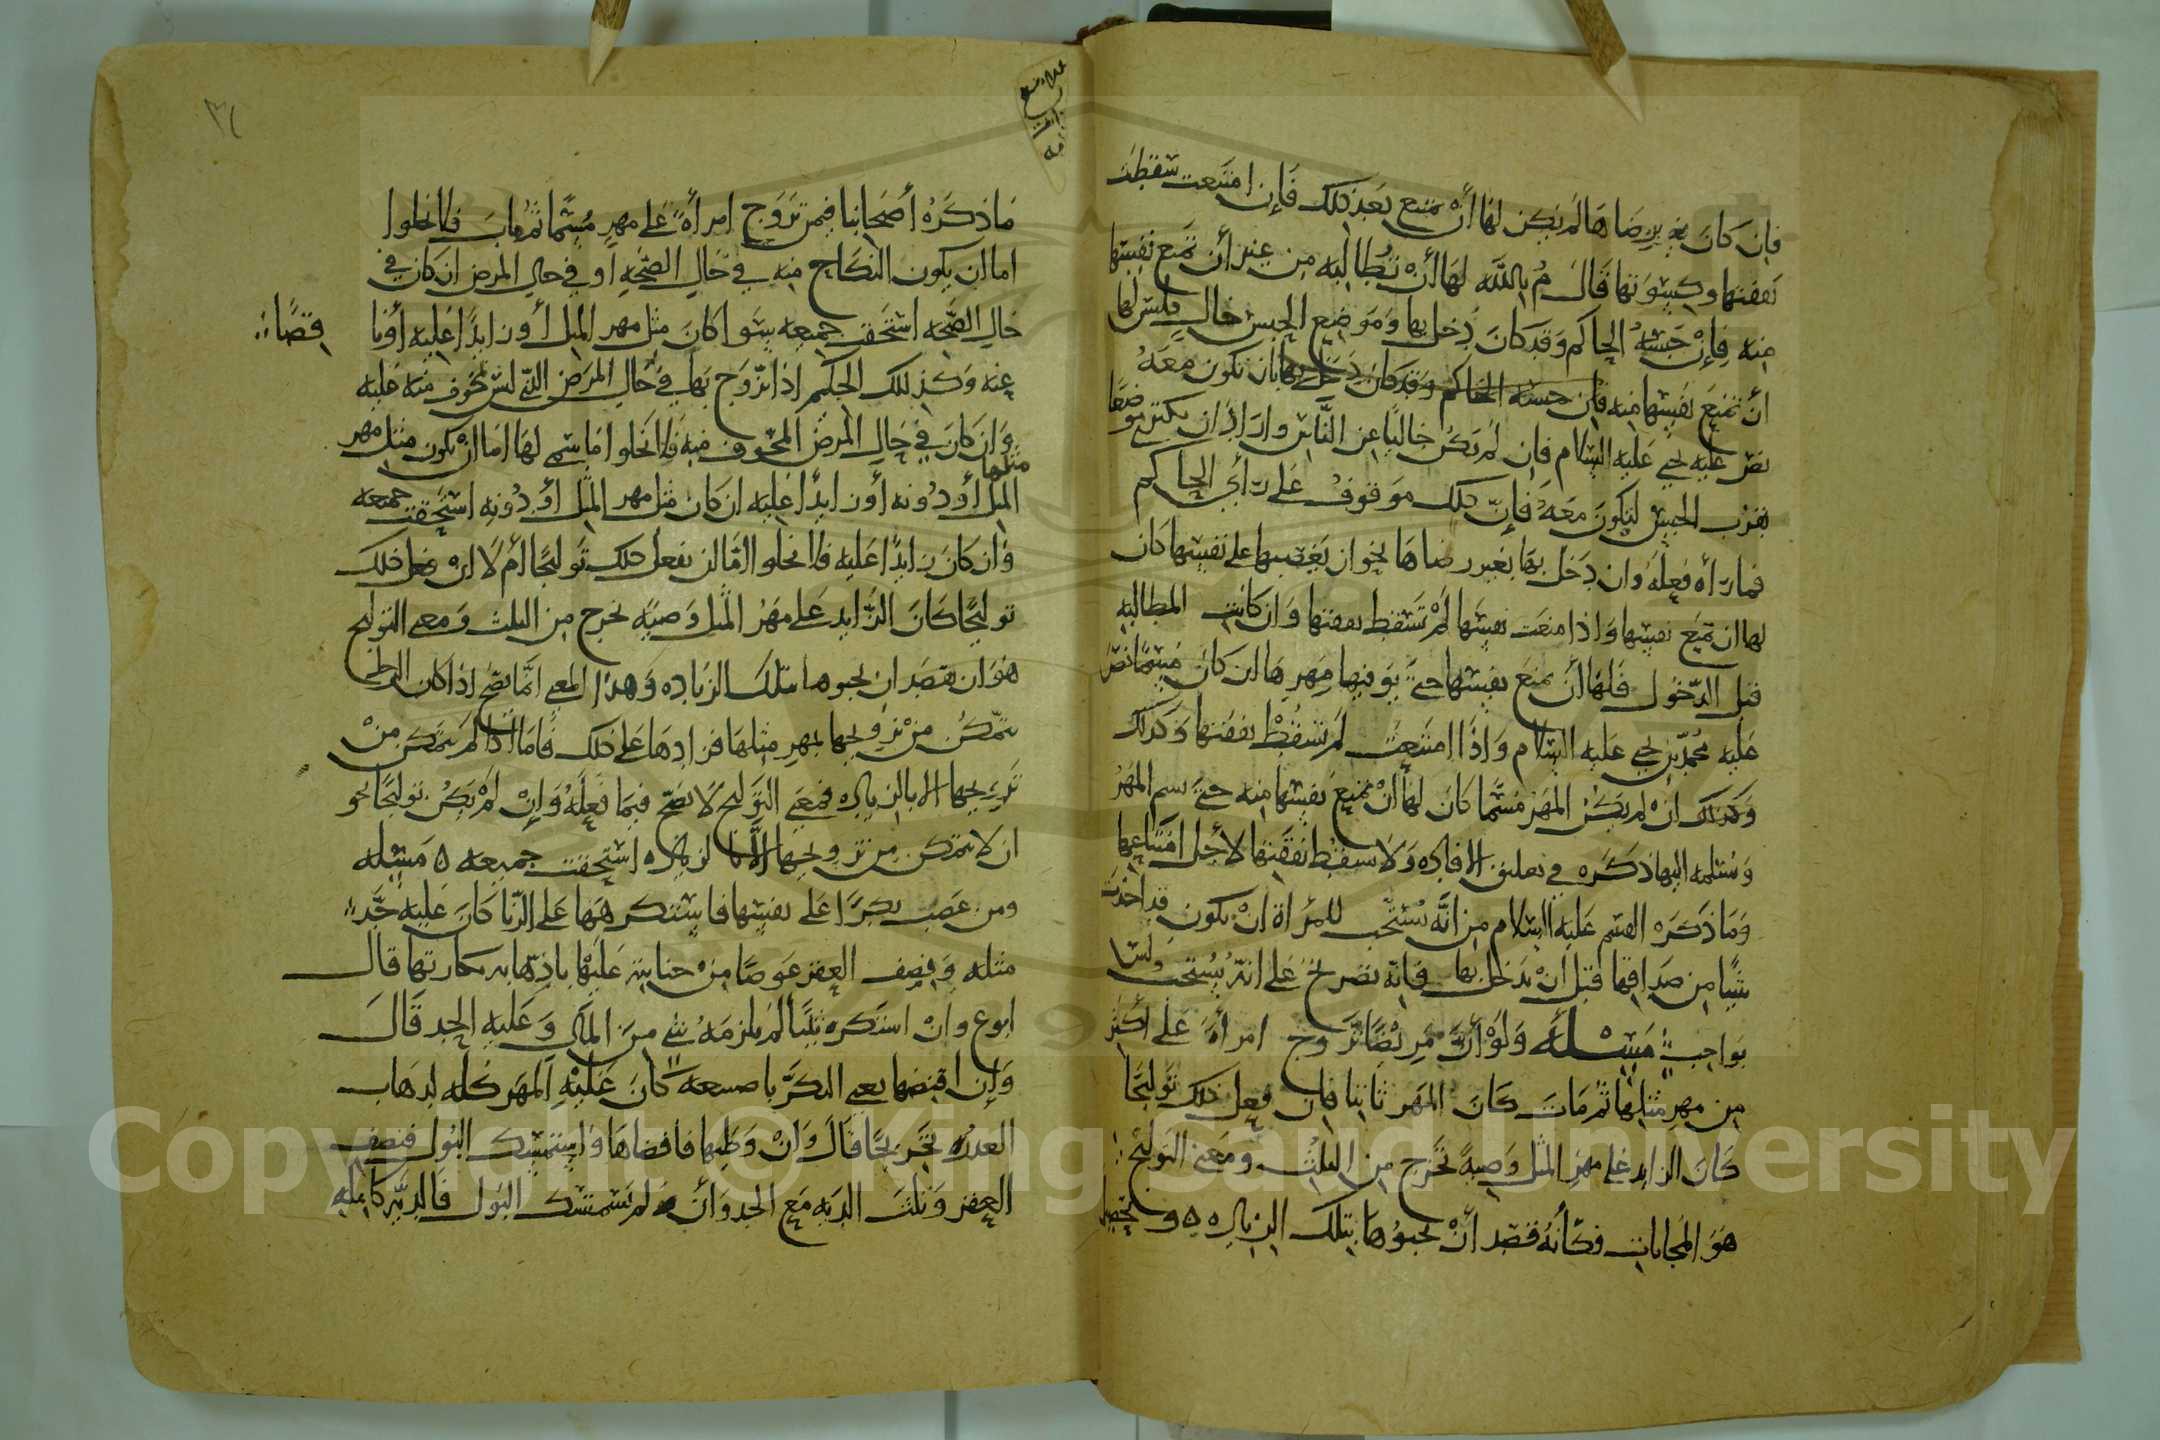 فان كان برضاها لم يكن لها أن تمتنع بعد ذلك فإن امتنعت سقطت
نفقتها وكسوتها قال م بالله لها أن تطالبه من غير أن تمنع نفسها
منه فإن حبسه الحاكم وقد كان دخل بها وموضع الحبس خال فليس لها
أن تمنع نفسها منه فإن حبسه الحاكم وقد كان دخل بها بان تكون معه
نص عليه يحيى عليه السلام فان لم يكن خاليا عن الناس واراد ان يكتري موضعا
بقرب الحبس ليكون معه فإن ذلك موقوف على رأي الحاكم
فما رأه فعله وان دخل بها بغير رضاها نحو ان يغصبها على نفسها كان
لها ان تمنع نفسها واذا منعت نفسها لم تسقط نفقتها وان كانت المطالبه
قبل الدخول فلها أن تمنع نفسها حتى يوفيها مهرها ان كان مسما نص
عليه محمد بن يحيى عليه السلام واذا امتنعت لم تسقط نفقتها وكذلك
وكذلك ان لم يكن المهر مسما كان لها أن تمنع نفسها منه حتى يسم المهر
وسلمه اليها ذكره في تعليق الافاده ولا تسقط نفقتها لأجل امتناعها
وما ذكره القسم عليه السلام من انه يستحب للمرأة ان يكون قد اخذت
شيا من صداقها قبل ان يدخل بها فانه تصريح على انه يستحب وليس
بواجب مسئلة ولو أن مريضا تزوج امرأة على أكثر
من مهر مثلها ثم مات كان المهر ثابتا فان فعل ذلك توليجا
كان الزايد على مهر المثل وصية تخرج من الثلث ومعنى التوليج
هو المحابات فكأنه قصد أن يحبوها بتلك الزياده ه وتحصيل
ما ذكره أصحابنا فيمن تزوج امرأة على مهر مسما ثم مات فلا يخلوا
اما ان يكون النكاح منه في حال الصحه او في حال المرض ان كان في
حال الصحه استحقت جميعه سوا كان مثل مهر المثل أو زايدا عليه أو ناقصا
عنه وكذلك الحكم اذا تزوج بها في حال المرض الذي ليس بمخوف منه عليه
وان كان في حال المرض المخوف منه فلا يخلوا ما سمى لها اما ان يكون مثل مهر
مثلها
المثل أو دونه أو زايدا عليه ان كان مثل مهر المثل أو دونه استحقت جميعه
وان كان زايدا عليه فلا يخلوا اما ان يفعل ذلك توليجا أم لا ان فعل ذلك
توليجا كان الزايد على مهر المثل وصيه تخرج من الثلث ومعنى التوليج
هو ان يقصد ان يحبوها بتلك الزياده وهذا المعنى انما يصح اذا كان الرجل
يتمكن من تزويجها بمهر مثلها فزادها على ذلك فاما اذا لم يتمكن من
تزويجها الا بالزياده فمعنى التوليج لا يصح فيما فعله وإن لم يكن توليجا نحو
ان لا يتمكن من تزويجها الا بالزياده استحقت جميعه ه مسئله
ومن غصب بكرا على نفسها فاستكرهها على الزنا كان عليه حد
مثله ونصف العقر عوضا من جنايته عليها باذهابه بكارتها قال
ابوع وان استكره ثيبا لم يلزمه شي من المال وعليه الحد قال
وإن اقتضها يعنى البكر باصبعه كان عليه المهر كله لذهاب
العذره تخريجا قال وان وطيها فافضاها واستمسك البول فنصف
العقر وثلث الديه مع الحد وأن لم يستمسك البول فالديه كامله